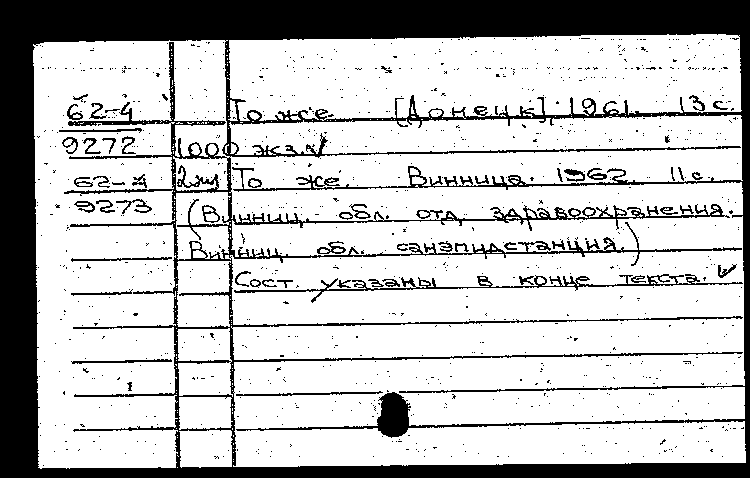 62-4 То же [Донецк], 1961. 13 с.
9272 1000 экз.
62-4 То же. Винница. 1962. 11 с.
9273 (Винниц. обл. отд. здравоохранения.
Винниц. обл. санэпидстанция.)
Сост. указаны в конце текста.